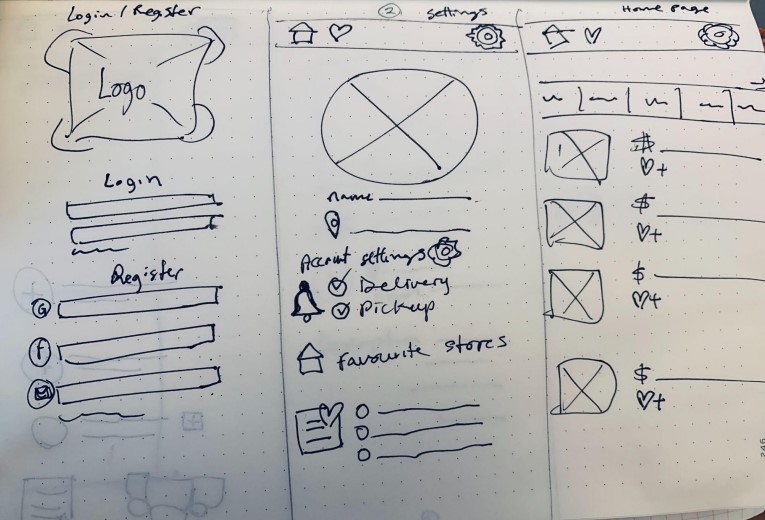 Login / Register
Logo
Login
Register
G
f
② settings
name
Account settings
Delivery
Pickup
favourite stores
Home page
$
+
$
+
$
+
$
+
246